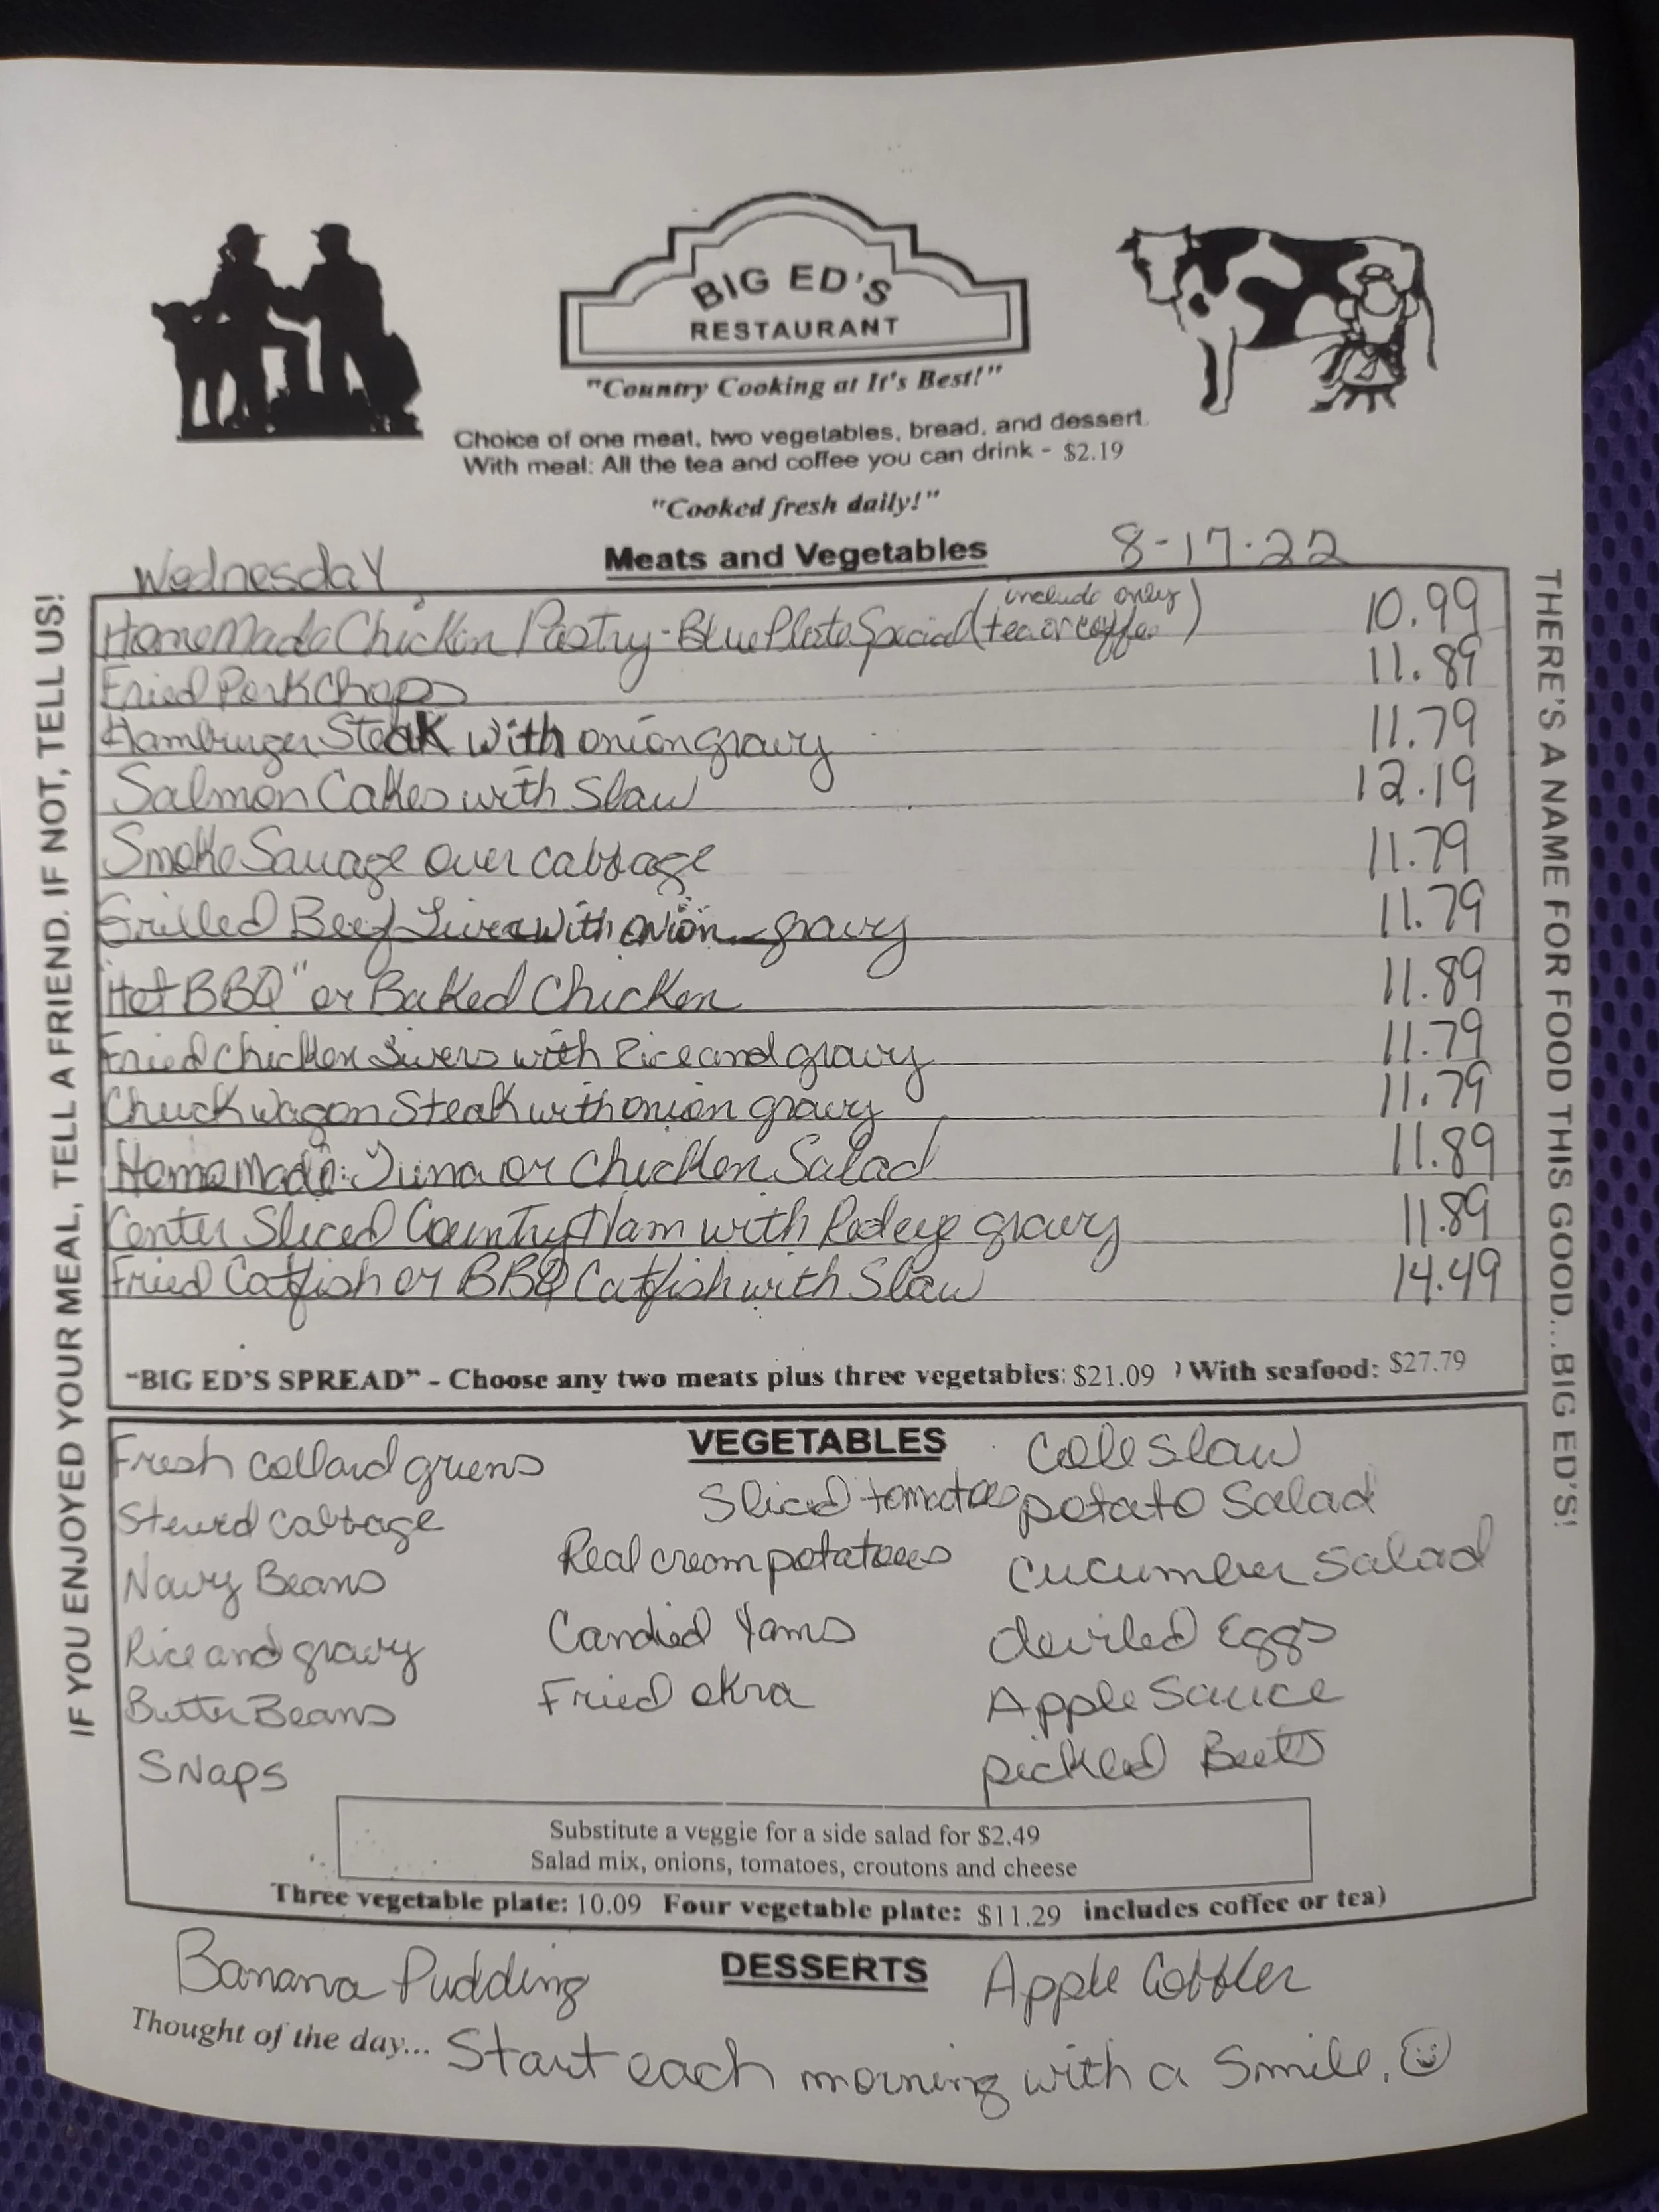 BIG ED'S
RESTAURANT
"Country Cooking at It's Best!"
Choice of one meat, two vegetables, bread, and dessert.
With meal: All the tea and coffee you can drink - $2.19
"Cooked fresh daily!"
Wednesday
Meats and Vegetables
8-17-22
HomeMade Chicken Pastry - Blue Plate Special (include only tea or coffee) 10.99
Fried Pork Chops 11.89
Hamburger Steak with onion gravy 11.79
Salmon Cakes with Slaw 12.19
Smoke Sauage over cabbage 11.79
Grilled Beef Liver with onion gravy 11.79
"Hot BBQ" or Baked Chicken 11.89
Fried Chicken Livers with Rice and gravy 11.79
Chuck wagon Steak with onion gravy 11.79
HomeMade: Tuna or Chicken Salad 11.89
Center Sliced Country Ham with Redeye gravy 11.89
Fried Catfish or BBQ Catfish with Slaw 14.49
"BIG ED'S SPREAD" - Choose any two meats plus three vegetables: $21.09 ) With seafood: $27.79
IF YOU ENJOYED YOUR MEAL, TELL A FRIEND. IF NOT, TELL US!
THERE'S A NAME FOR FOOD THIS GOOD...BIG ED'S!
VEGETABLES
Fresh collard greens
Stewed Cabbage
Navy Beans
Rice and gravy
Butter Beans
SNaps
Sliced tomatoes
Real cream potatoes
Candied Yams
Fried okra
Cole Slaw
potato Salad
cucumber Salad
deviled Eggs
Apple Sauce
pickled Beets
Substitute a veggie for a side salad for $2.49
Salad mix, onions, tomatoes, croutons and cheese
Three vegetable plate: 10.09 Four vegetable plate: $11.29 includes coffee or tea)
DESSERTS
Banana Pudding
Apple Cobbler
Thought of the day... Start each morning with a Smile.